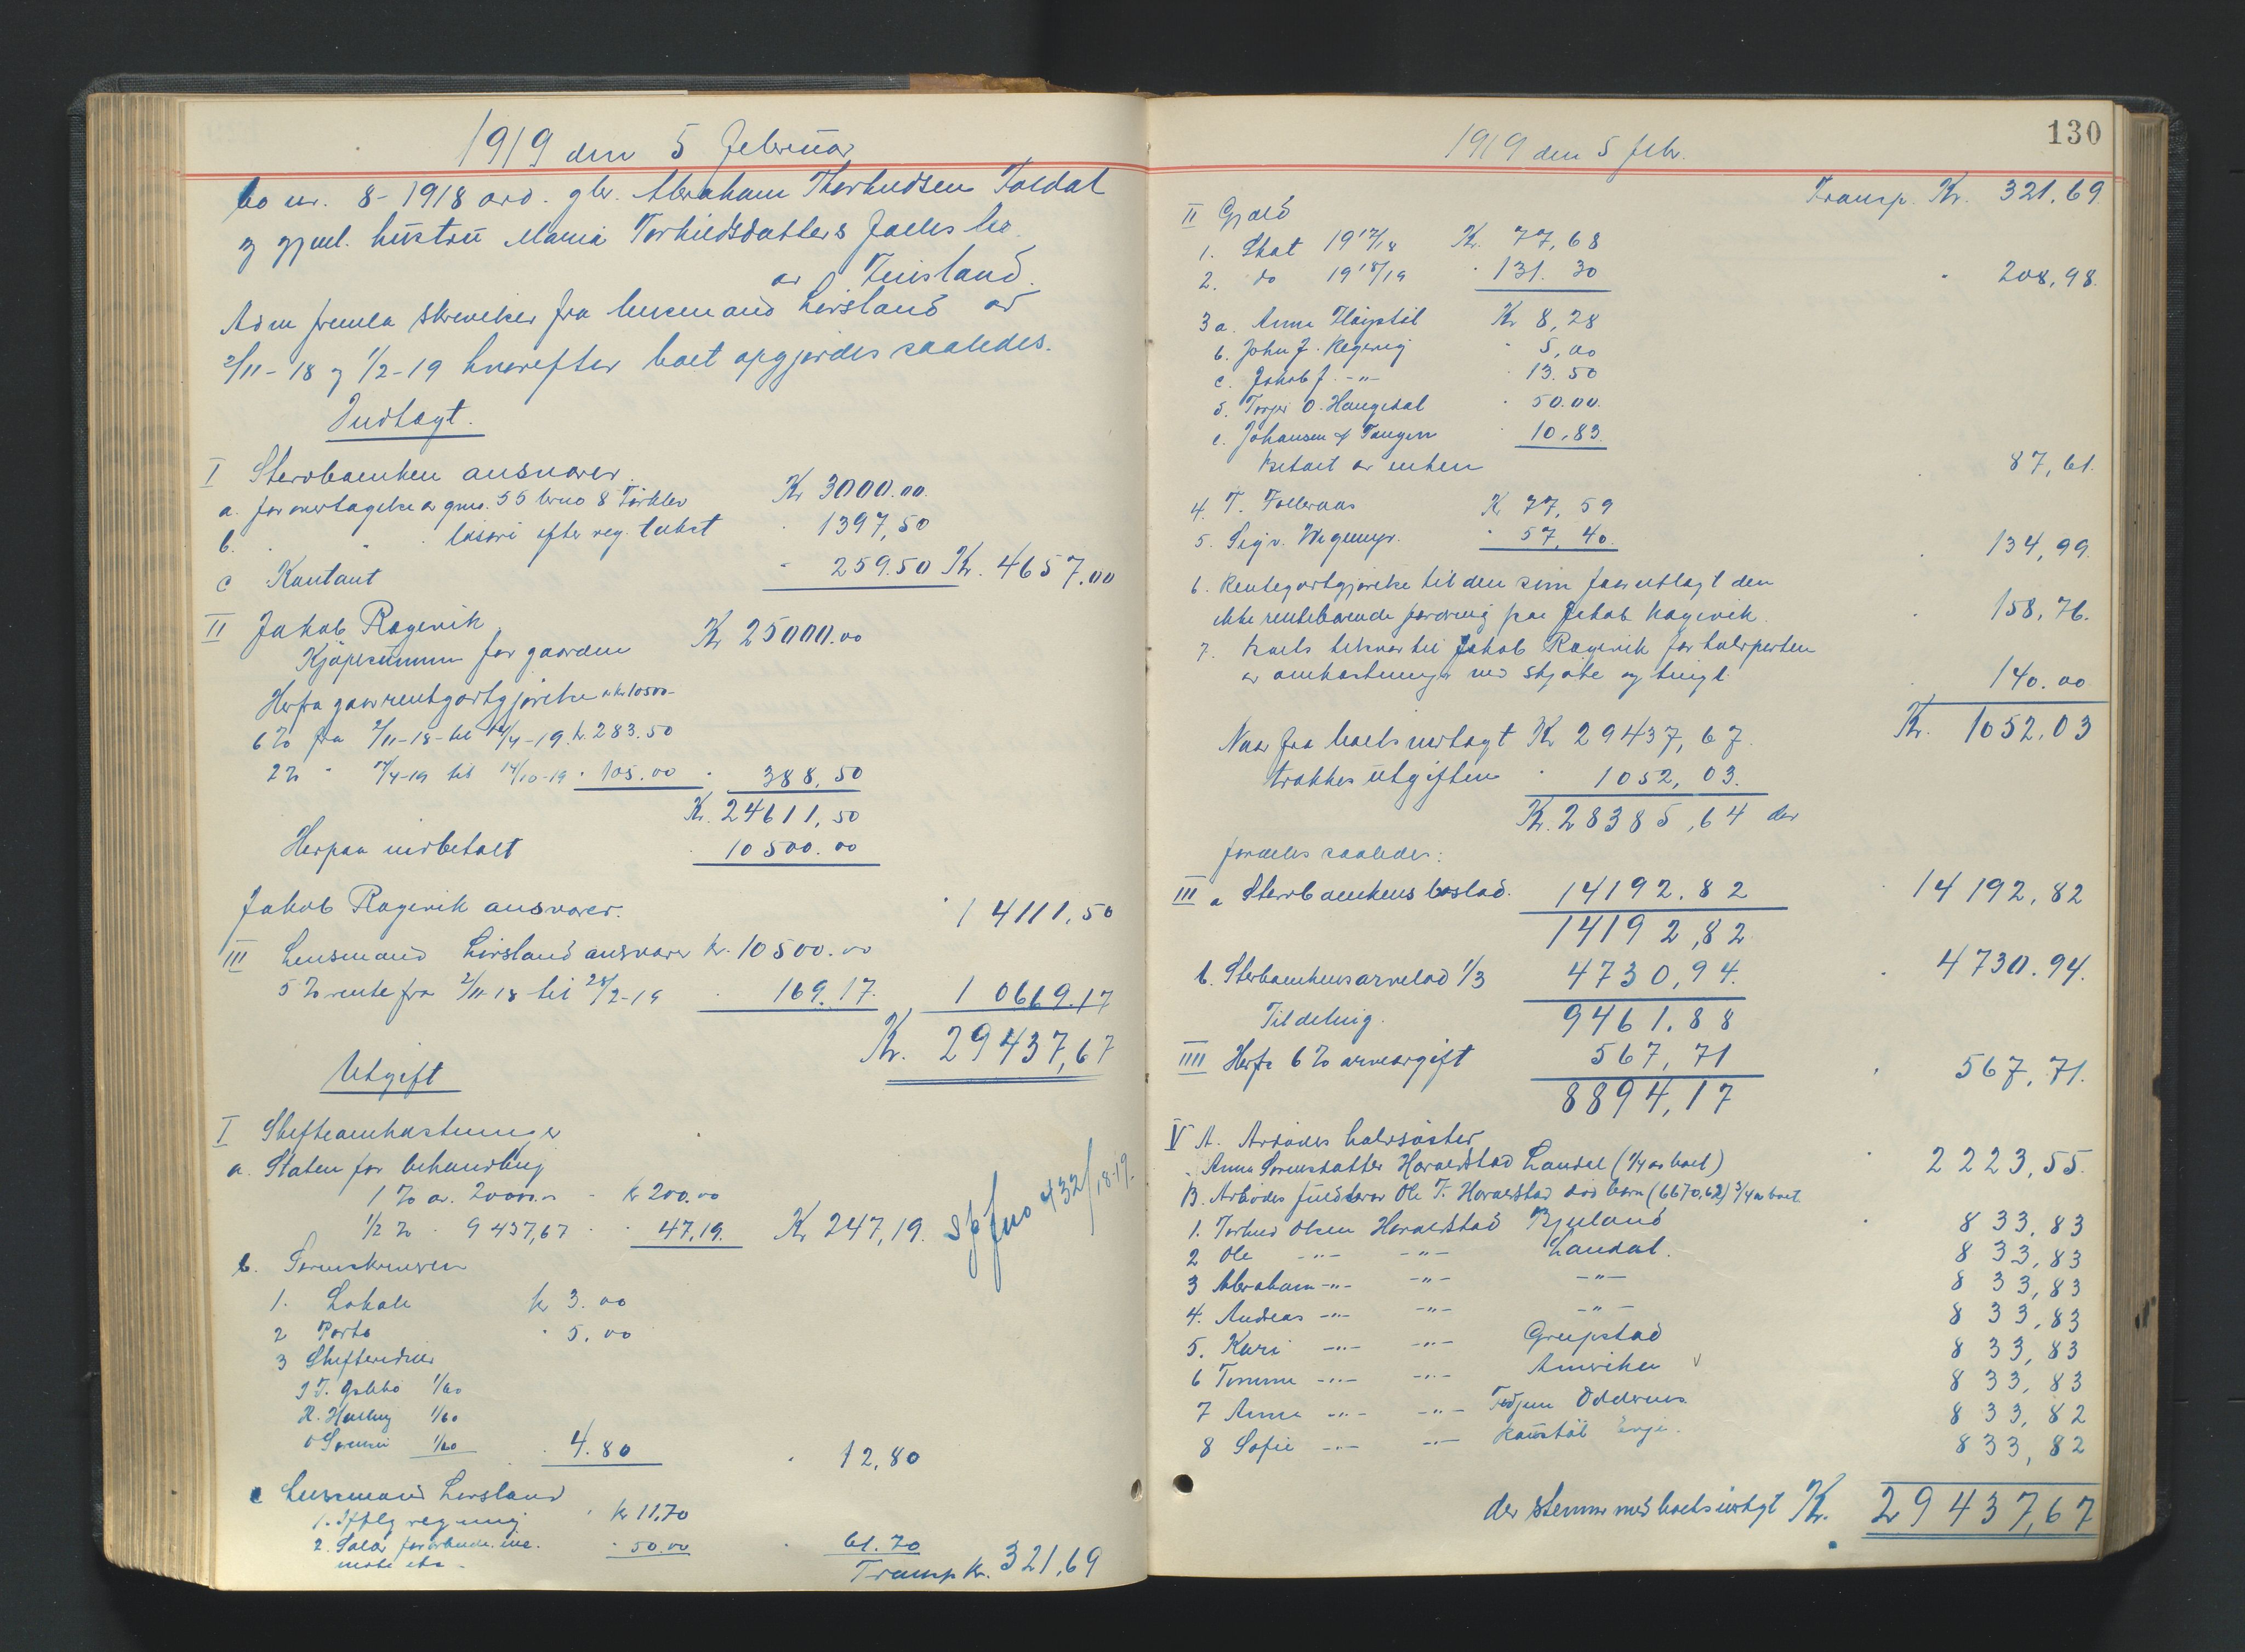 1919 den 5 Februar
bo nr. 8-1918 avd. gbr. Abraham Thorkildsen Foldal
og gjenl. hustru Maria Torkildsdatters fælles bo
av Finsland.
Adm fremla skrivelser fra lensmand Lirsland av
2/11-18 og 1/2-19 hvorefter boet opgjordes saaledes.
Indtægt.
I Stervboenken ansvarer
a. for overtagelse av gno. 55 bruo 8 Kr 3000.00
b. " " løsøre efter reg. takst " 1397,50
c Kontant " 259.50 Kr. 4657.00
II Jakob Røgevik
Kjøpesummen for gaarden Kr 25000.00
Herfra gaar rentgodtgjørelse av kr 10500-
6% fra 2/11-18 til 14/4-19 k. 283.50
2% " 14/4-19 til 14/10-19 " 105.00 " 388,50
Kr. 24611,50
Herpaa indbetalt " 10500.00
Jakob Røgevik ansvarer. " 14111,50
III Lensmand Lirsland ansvarer kr. 10500.00
5% rente fra 2/11-18 til 28/2-19 " 169.17. 10669.17
Kr. 29437,67
Utgift
I Skifteomkostninger
a. Staten for behandling
1% av. 20000.- - kr 200.00
1/2% " 9437,67 " " 47,19. Kr 247,19.
Skj fno 432/18-19.
b. Sorenskriveren
1. Lokale kr 3.00
2 Porto " 5,00
3 Skiftevidner
1/60
1/60
1/60 " 4.80 " 12,80
c Lensmand Lirsland
1. Ifølg regning " kr 11,70
2. Salær for " 50.00 " 61.70
møte etc -
Transp kr. 321,69
130
1919 den 5 febr.
Transp. Kr. 321,69.
II Gjæld
1. Skat 1917/18 Kr. 77,68
2. do 1918/19 " 131.30 " 208,98.
3a. Anna Høiestøl Kr 8,28
b. John J. Røgevig " 5,00
c. Jakob J. -"- " 13.50
d. Torjei O. Haugedal " 50.00.
e. Johansen & Tangen " 10,83.
Betalt av enken " 87,61.
4. T. Folleraas K 77,59
5. Sigv. " 57,40. " 134,99.
6. Rentegodtgjørelse til den som faar utlagt den
ikke rentebærende fordring paa Jakob Røgevik. " 158,76.
7. Boets tilsvar til Jakob Røgevik for halvparten
av omkostninger ved skjøte og tingl. " 140.00
Kr. 1052,03
Naar fra boets indtægt Kr 29437,67.
trækkes utgiften " 1052,03.
Kr. 28385,64 der
fordeles saaledes:
III a Stervboenkens boslod. 14192.82 " 14192,82
14192,82
b. Stervboenkens arvelod 1/3 4730,94. " 4730.94.
Til deling. 9461.88
IIII Herfra 6% arveavgift 567,71 " 567,71.
8894,17
V A. Avdødes halvsøster
Anna Sorensdatter Haraldstad Laudal (1/4 av boet) " 2223,55.
B. Avdødes fuldbror Ole T. Haraldstad død børn (6670,62) 3/4 av boet
1. Torkild Olsen Haraldstad Bjelland " 833,83
2 Ole -"- -"- Laudal. 833,83
3 Abraham -"- -"- -"- 833,83
4. Andreas -"- -"- -"- 833,83
5. Kari -"- -"- Greipstad 833,83
6 Tomine -"- -"- Amerika v 833,83
7 Anna -"- -"- Oddernes 833,82
8 Sofie -"- -"- Evje. 833,82
der stemmer med boets indtægt Kr. 29437,67